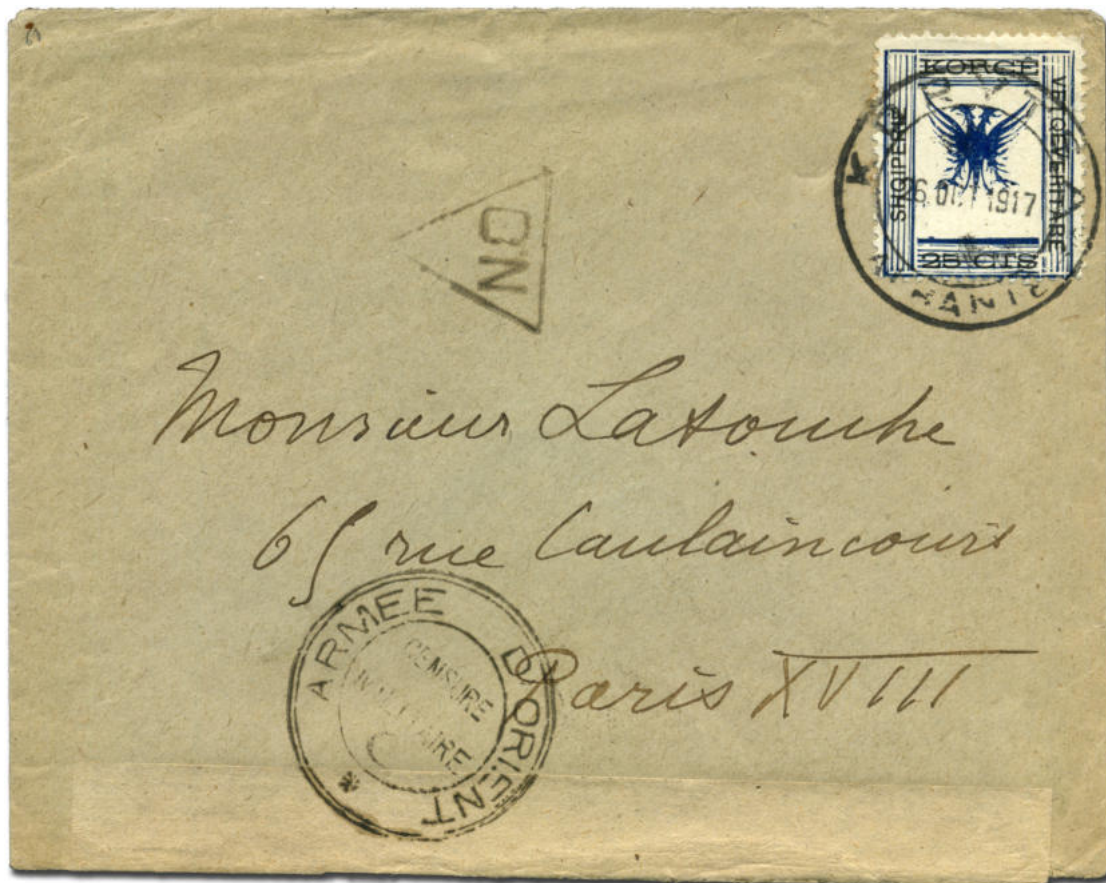 KORCE
SHQIPERIE
VETQEVERITARE
25 CTS
1917
BN
Monsieur Latouche
65 rue Caulaincourt
Paris XVIII
ARMEE D'ORIENT
CENSURE
MILITAIRE